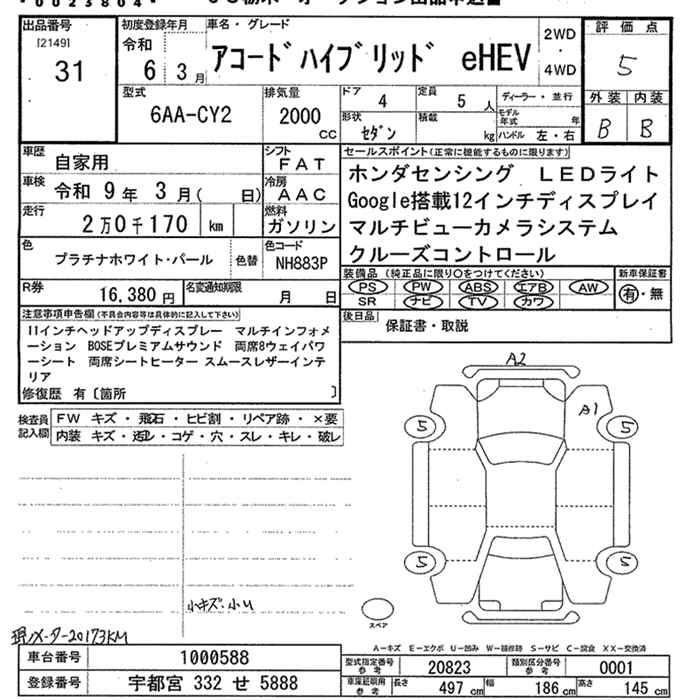 *0023804*
出品番号 初度登録年月 車名・グレード 評価点
[2149] 令和 2WD
31 6 3月 アコードハイブリッド eHEV ・ 5
4WD
型式 排気量 ドア 4 定員 5人 ディーラー・並行 外装 内装
6AA-CY2 2000 モデル年式 年 B B
cc 形状 セダン 積載 kg ハンドル 左・右
車歴 自家用 シフト FAT セールスポイント(正常に機能するものに限ります)
車検 令和 9年 3月( 日) 冷房 AAC ホンダセンシング LEDライト
走行 2万0千170 km 燃料 ガソリン Google搭載12インチディスプレイ
マルチビューカメラシステム
色 プラチナホワイト・パール 色替 色コード NH883P クルーズコントロール
R券 16,380円 名変通知期限 月 日 装備品(純正品に限り○をつけてください) 新車保証書
PS PW ABS エアB AW 有・無
SR ナビ TV カワ
注意事項申告欄(不具合内容等は具体的に記入して下さい) 後日品 保証書・取説
11インチヘッドアップディスプレー マルチインフォメ
ーション BOSEプレミアムサウンド 両席8ウェイパワ
ーシート 両席シートヒーター スムースレザーインテ
リア
修復歴 有〔箇所 〕
検査員記入欄 FW キズ・飛石・ヒビ割・リペア跡・×要
内装 キズ・汚ミ・コゲ・穴・スレ・キレ・破レ
A2
A1
5 5
5 5
小キズ・小U
スペア
現メーター20173KM
A-キズ E-エクボ U-凹み W-補修跡 S-サビ C-腐食 XX-交換済
車台番号 1000588 型式指定番号 参考 20823 類別区分番号 参考 0001
登録番号 宇都宮 332 せ 5888 車庫証明用 参考 長さ 497cm 幅 186cm 高さ 145cm